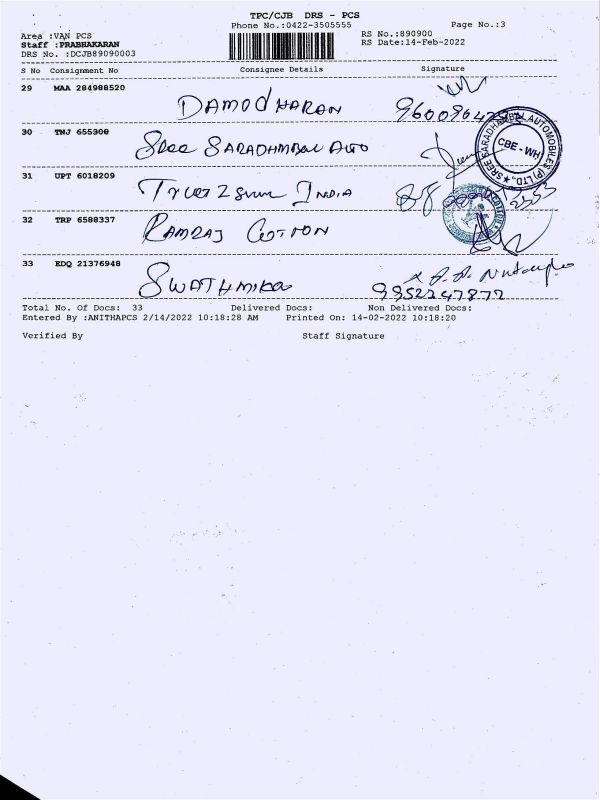 TPC/CJB DRS - PCS
Phone No.:0422-3505555
Page No.:3
Area :VAN PCS
RS No.:890900
Staff :PRABHAKARAN
RS Date:14-Feb-2022
DRS No. :DCJB89090003
S No Consignment No Consignee Details Signature
29 MAA 284988520 DAMODHARAN
30 TNJ 655308 SREE SARADHAMBAL AUTO
SREE SARADHAMBAL AUTOMOBILES (P) LTD.,
CBE - WH
31 UPT 6018209 INDIA
32 TRP 6588337 RAMRAJ COTTON
33 EDQ 21376948 SWATHMIKA
9952247877
Total No. Of Docs: 33 Delivered Docs: Non Delivered Docs:
Entered By :ANITHAPCS 2/14/2022 10:18:28 AM Printed On: 14-02-2022 10:18:20
Verified By Staff Signature